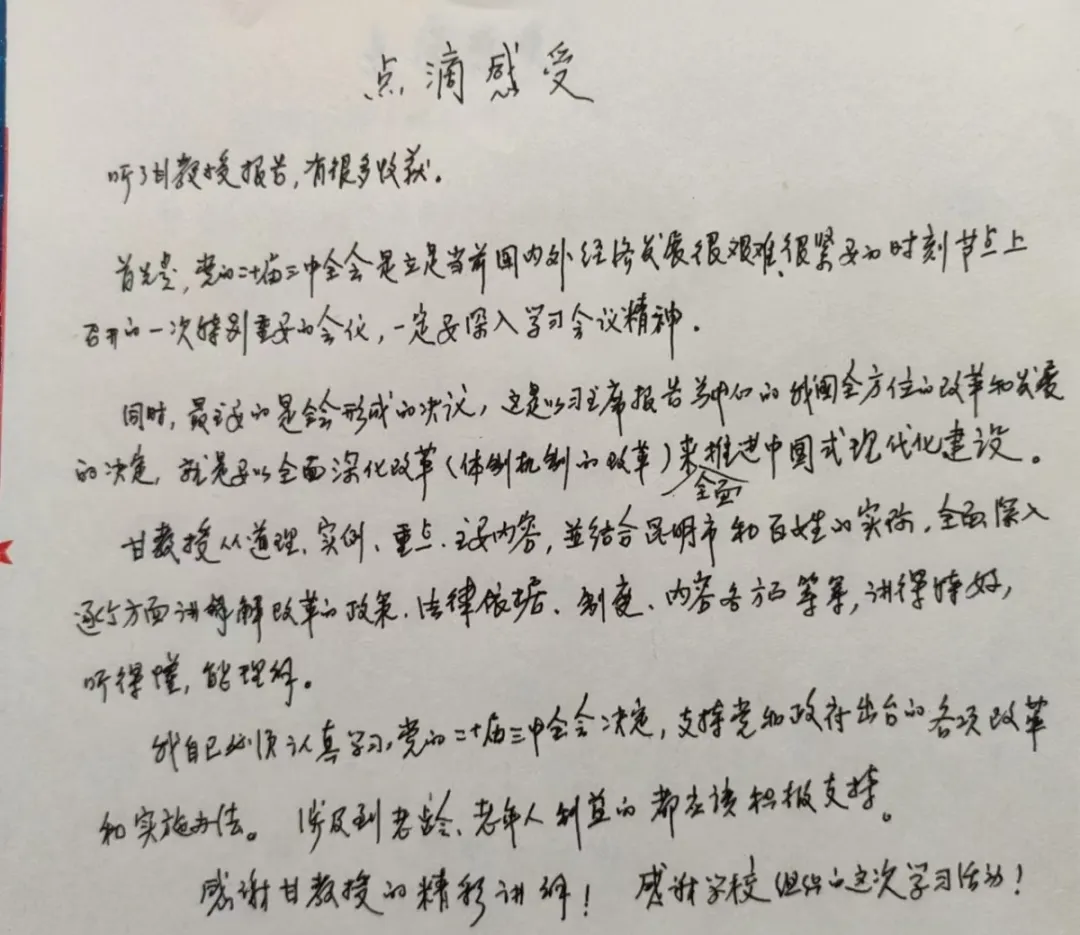 点滴感受
听了甘教授报告,有很多收获。
首先是,党的二十届三中全会是立是当前国内外经济发展很艰难、很紧要的时刻节点上
召开的一次特别重要的会议,一定要深入学习会议精神。
同时,最主要的是全会形成的决议,这是以习主席报告为中心的我国全方位的改革和发展
的决定,就是要以全面深化改革(体制机制的改革)来推进中国式现代化建设。
全面
甘教授从道理、实例、重点、主要内容,並结合昆明市和百姓的实际,全面深入
逐个方面讲解改革的政策、法律依据、制度、内容各方面等等,讲得特好,
听得懂,能理解。
我自己必须认真学习,党的二十届三中全会决定,支持党和政府出台的各项改革
和实施办法。涉及到老龄、老年人利益的都应该积极支持。
感谢甘教授的精彩讲解!感谢学校组织的这次学习活动!